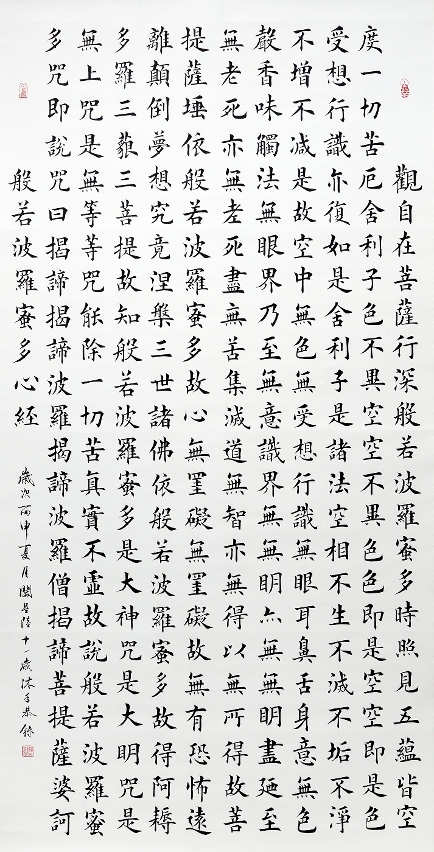 觀自在菩薩行深般若波羅蜜多時照見五蘊皆空
度一切苦厄舍利子色不異空空不異色色即是空空即是色
受想行識亦復如是舍利子是諸法空相不生不滅不垢不淨
不增不減是故空中無色無受想行識無眼耳鼻舌身意無色
聲香味觸法無眼界乃至無意識界無無明亦無無明盡廼至
無老死亦無老死盡無苦集滅道無智亦無得以無所得故菩
提薩埵依般若波羅蜜多故心無罣礙無罣礙故無有恐怖遠
離顛倒夢想究竟涅槃三世諸佛依般若波羅蜜多故得阿耨
多羅三藐三菩提故知般若波羅蜜多是大神咒是大明咒是
無上咒是無等等咒能除一切苦真實不虛故說般若波羅蜜
多咒即說咒曰揭諦揭諦波羅揭諦波羅僧揭諦菩提薩婆訶
般若波羅蜜多心経
歲次丙申夏月十一歲沐手恭錄